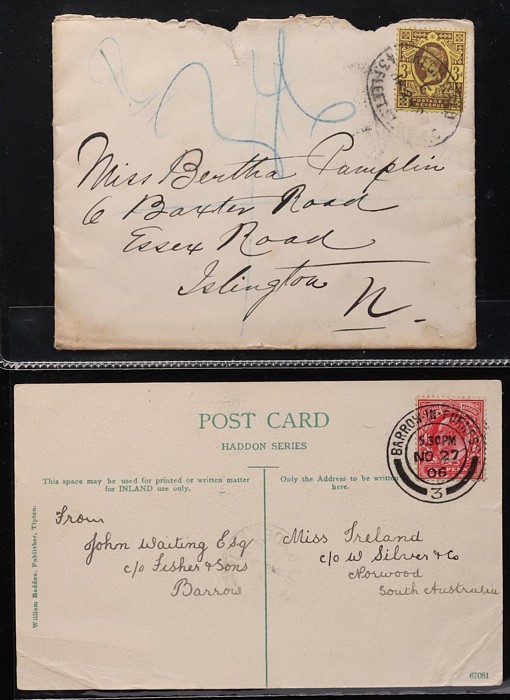 3 3
POSTAGE
REVENUE
Miss Bertha Pamplin
6 Baxter Road
Essex Road
Islington
N.
POST CARD
HADDON SERIES
This space may be used for printed or written matter
for INLAND use only.
Only the Address to be written
here.
BARROW-IN-FURNESS
5.30PM
NO 27
06
3
William Haddon, Publisher, Tipton.
From
John Waiting Esq
c/o Fisher & Sons
Barrow
Miss Ireland
c/o W Silver & Co
Norwood
South Australia
67081